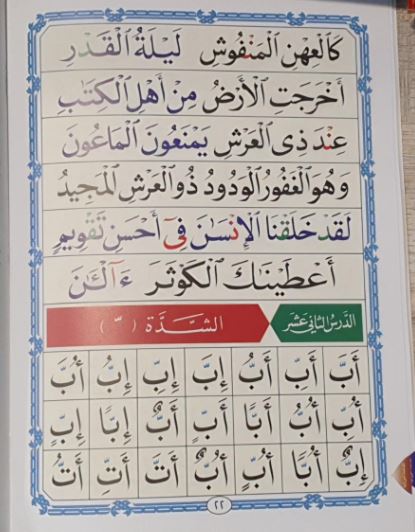 كَٱلْعِهْنِ ٱلْمَنْفُوشِ لَيْلَةُ ٱلْقَدْرِ
أَخْرَجَتِ ٱلْأَرْضُ مِنْ أَهْلِ ٱلْكِتَٰبِ
عِنْدَ ذِى ٱلْعَرْشِ يَمْنَعُونَ ٱلْمَاعُونَ
وَهُوَ ٱلْغَفُورُ ٱلْوَدُودُ ذُو ٱلْعَرْشِ ٱلْمَجِيدُ
لَقَدْ خَلَقْنَا ٱلْإِنْسَٰنَ فِىٓ أَحْسَنِ تَقْوِيمٍ
أَعْطَيْنَاكَ ٱلْكَوْثَرَ ءَآلْـَٰٔنَ
الدَّرْسُ الثَّانِي عَشَرَ الشَّدَّة ( ّ )
أَبَّ أَبِّ أَبُّ إِبَّ إِبِّ إِبُّ أُبَّ
أُبِّ أُبُّ أَبًّا أَبٍّ أَبٌّ إِبًّا إِبٍّ
إِبٌّ أُبًّا أُبٍّ أُبٌّ أَتَّ أَتِّ أَتُّ
٢٢